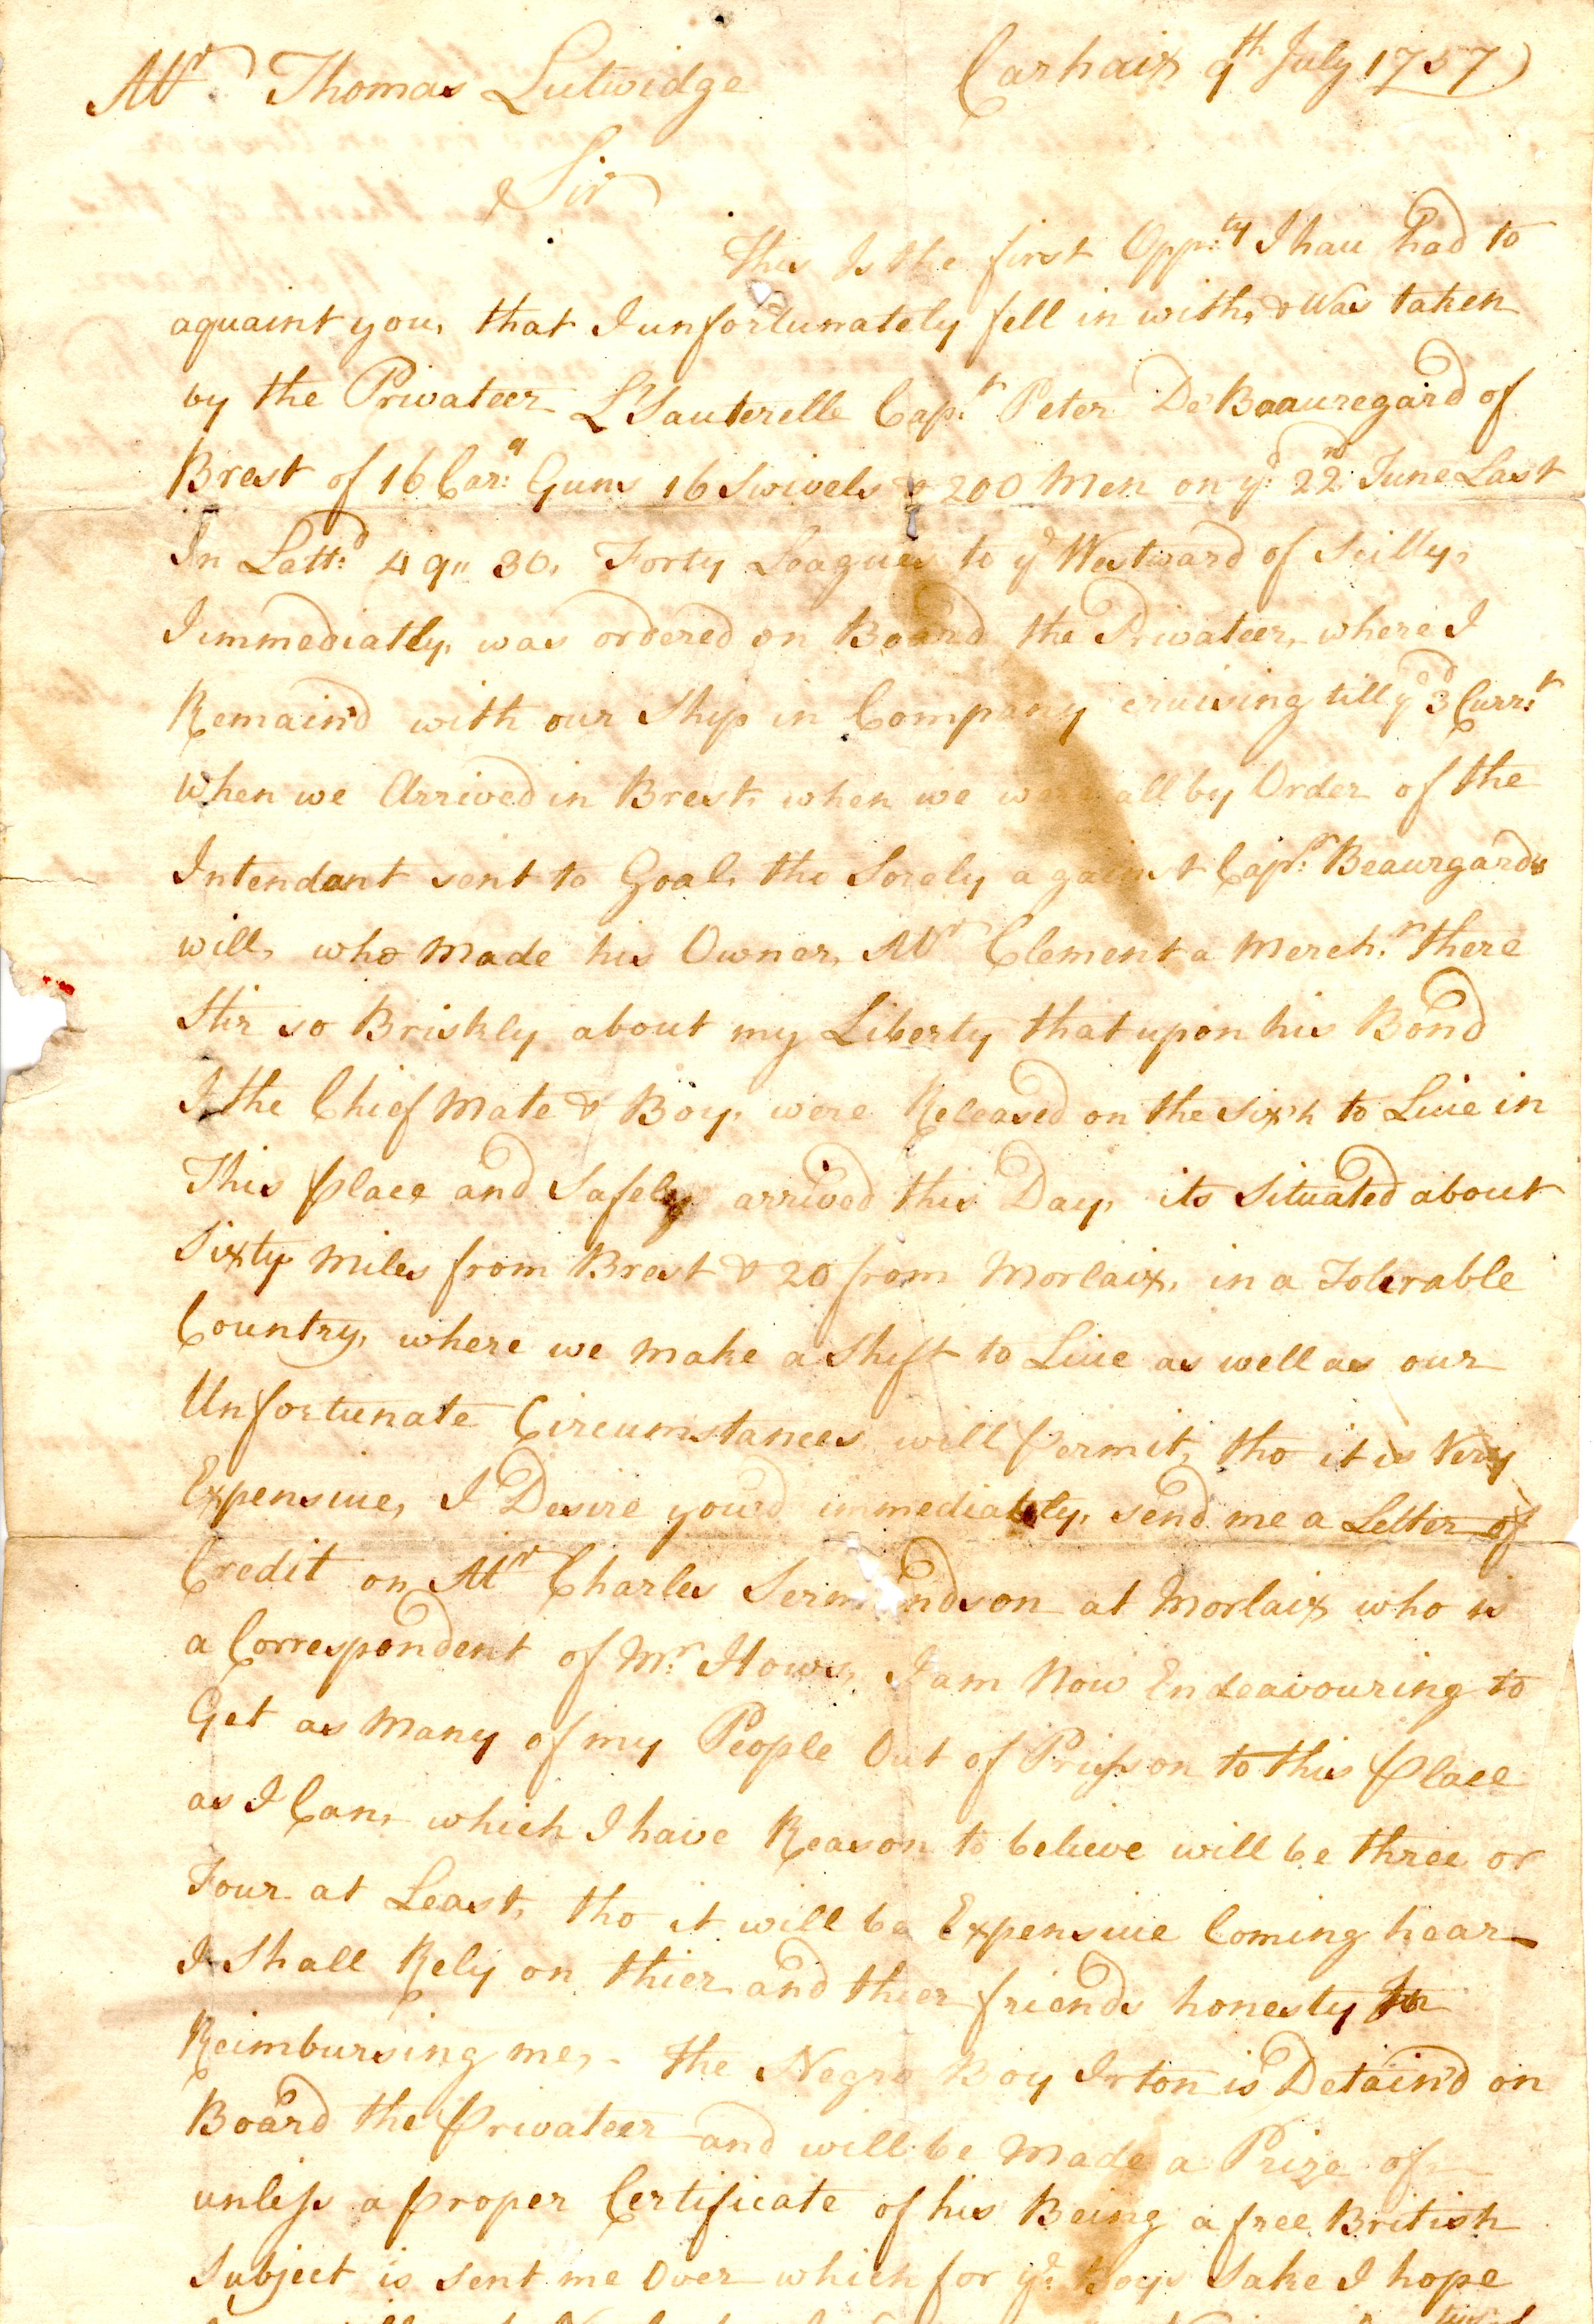 Mr Thomas Lutwidge Carhaix 9th July 1757
Sir
This Is the first Opp:ty I haue had to
aquaint you, that I unfortunately fell in with, & Was taken
by the Privateer L'Sauterelle Cap:t Peter De Baauregard of
Brest of 16 Car:a Guns 16 Swivels & 200 Men on ye 22nd June Last
In Latt:d 49" 30, Forty Leagues to ye Westward of Scilly,
I immediatly, was ordered on Board the Privateer, where I
Remain'd with our Ship in Company cruising till ye 3d Curr:t
when we Arrived in Brest, when we were all by Order of the
Intendant sent to Goal, tho Sorely against Cap:t Beaurgards
will, who made his Owner, Mr Clement a Merch:t there
Stir so Briskly about my Liberty that upon his Bond
I the Chief Mate & Boy, were Released on the Sixth to Liue in
This place and Safely arrived this Day, its Situated about
Sixty Miles from Brest & 20 from Morlaix, in a Tolerable
Country, where we make a Shift to Liue as well as our
Unfortunate Circumstances will permit, tho it is Very
Expensiue, I Desire you'd immediately, send me a Letter of
Credit on Mr Charles at Morlaix who is
a Correspondent of Mr: Hows, I am Now Endeavouring to
Get as Many of my People Out of Prisson to this place
as I Can, which I have Reason to believe will be three or
Four at Least, tho it will be Expensiue Coming hear
I Shall Rely on thier and thier friends honesty In
Reimbursing me, - the Negro Boy Irton is Detain'd on
Board the privateer and will be Made a Prize of
unless a proper Certificate of his Being a free British
Subject is sent me Over which for ye: Boys Sake I hope